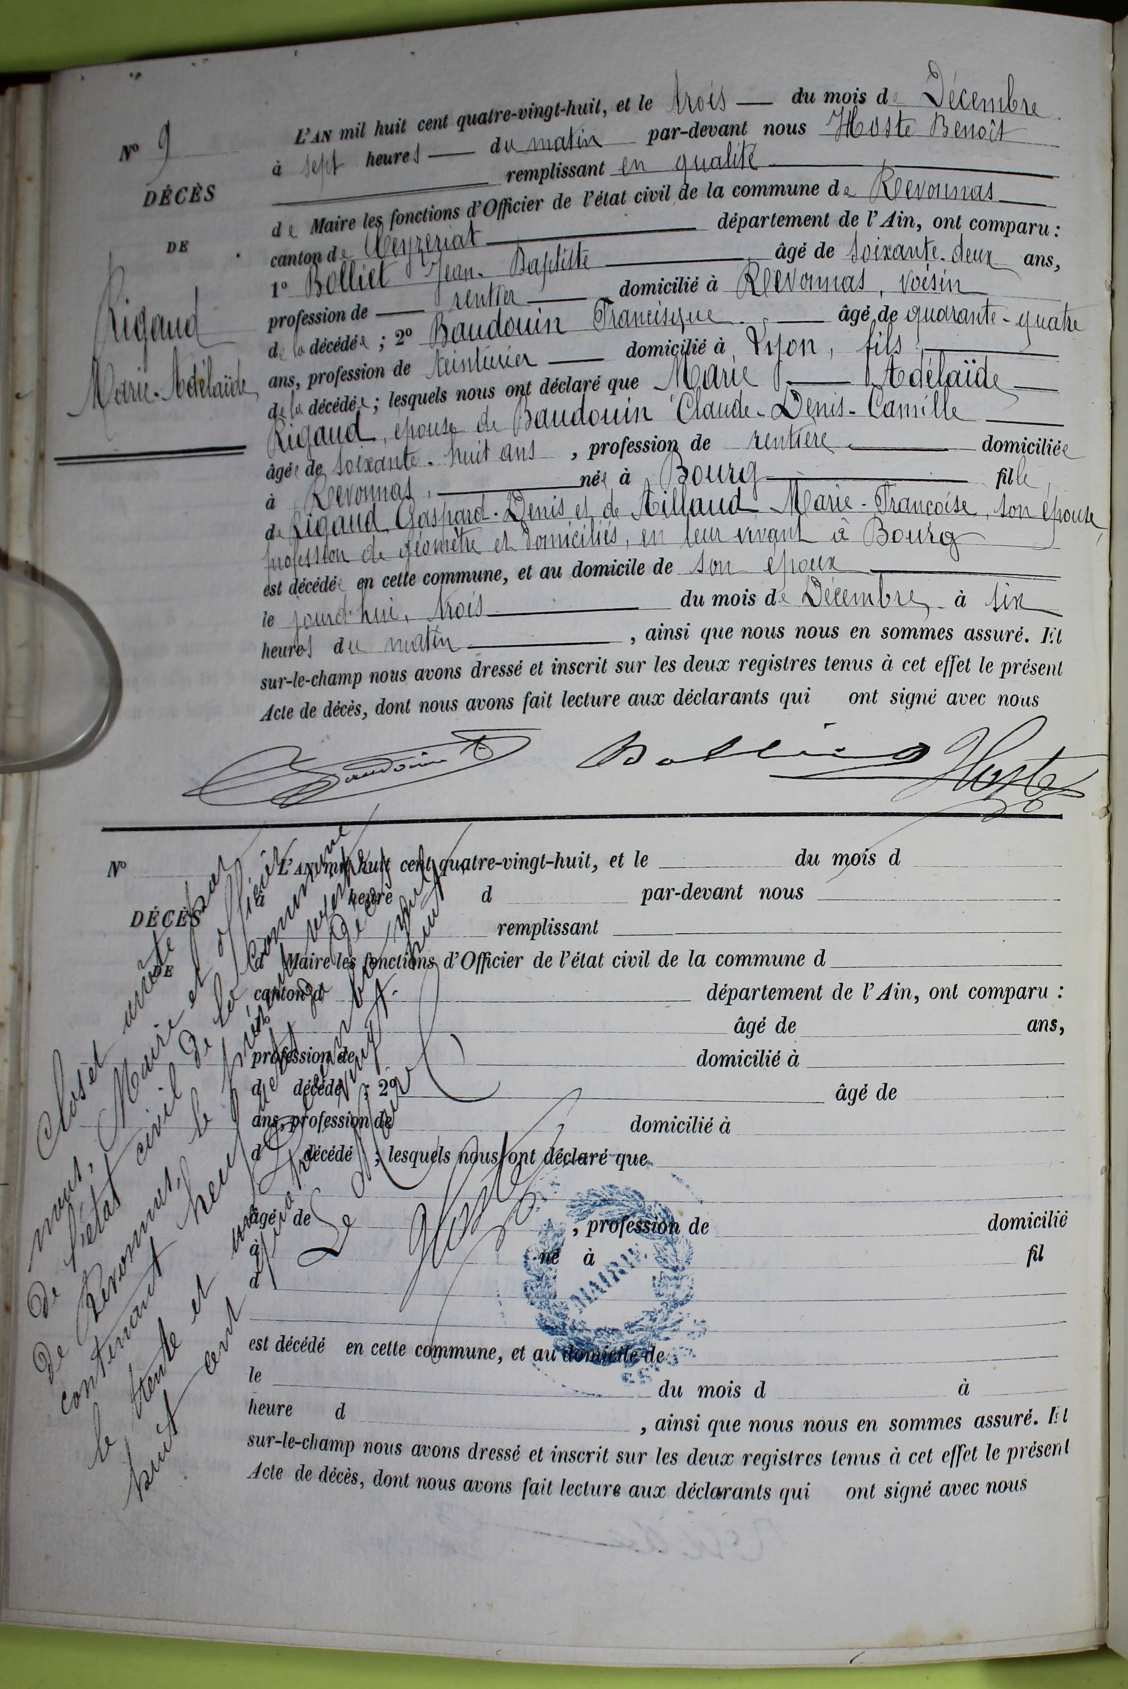 N° 9
DÉCÈS
DE
Rigaud
Marie-Adélaïde
L'AN mil huit cent quatre-vingt-huit, et le trois du mois de Décembre
à sept heures du matin par-devant nous Hoste Benoît
remplissant en qualité
de Maire les fonctions d'Officier de l'état civil de la commune de Revonnas
canton de Ceyzeriat département de l'Ain, ont comparu :
1° Bolliet Jean-Baptiste âgé de soixante-deux ans,
profession de rentier domicilié à Revonnas, voisin
de la décédée ; 2° Baudouin Francisque âgé de quarante-quatre
ans, profession de teinturier domicilié à Lyon, fils
de la décédée ; lesquels nous ont déclaré que Marie Adélaïde
Rigaud, épouse de Baudouin Claude-Denis-Camille
âgée de soixante-huit ans, profession de rentière domiciliée
à Revonnas, née à Bourg fille
de Rigaud Gaspard-Denis et de Aillaud Marie-Françoise, son épouse,
profession de géomètre et domiciliés, en leur vivant à Bourg
est décédée en cette commune, et au domicile de son époux
le jourd'hui, trois du mois de Décembre à six
heures du matin, ainsi que nous nous en sommes assuré. Et
sur-le-champ nous avons dressé et inscrit sur les deux registres tenus à cet effet le présent
Acte de décès, dont nous avons fait lecture aux déclarants qui ont signé avec nous
Baudouin Bolliet Hoste
N°
DÉCÈS
DE
L'AN mil huit cent quatre-vingt-huit, et le du mois d
à heure d par-devant nous
remplissant
d Maire les fonctions d'Officier de l'état civil de la commune d
canton d département de l'Ain, ont comparu :
âgé de ans,
profession de domicilié à
d décédé ; 2° âgé de
ans, profession de domicilié à
d décédé ; lesquels nous ont déclaré que
âgé de , profession de domicilié
à né à fil
d
est décédé en cette commune, et au domicile de
le du mois d à
heure d , ainsi que nous nous en sommes assuré. Et
sur-le-champ nous avons dressé et inscrit sur les deux registres tenus à cet effet le présent
Acte de décès, dont nous avons fait lecture aux déclarants qui ont signé avec nous
Clos et arrêté par
nous, Maire et officier
de l'état civil de la Commune
de Revonnas, le présent registre
contenant neuf actes de Décès
le trente et un Décembre mil
huit cent quatre vingt-huit.
Le Maire
Hoste
MAIRIE